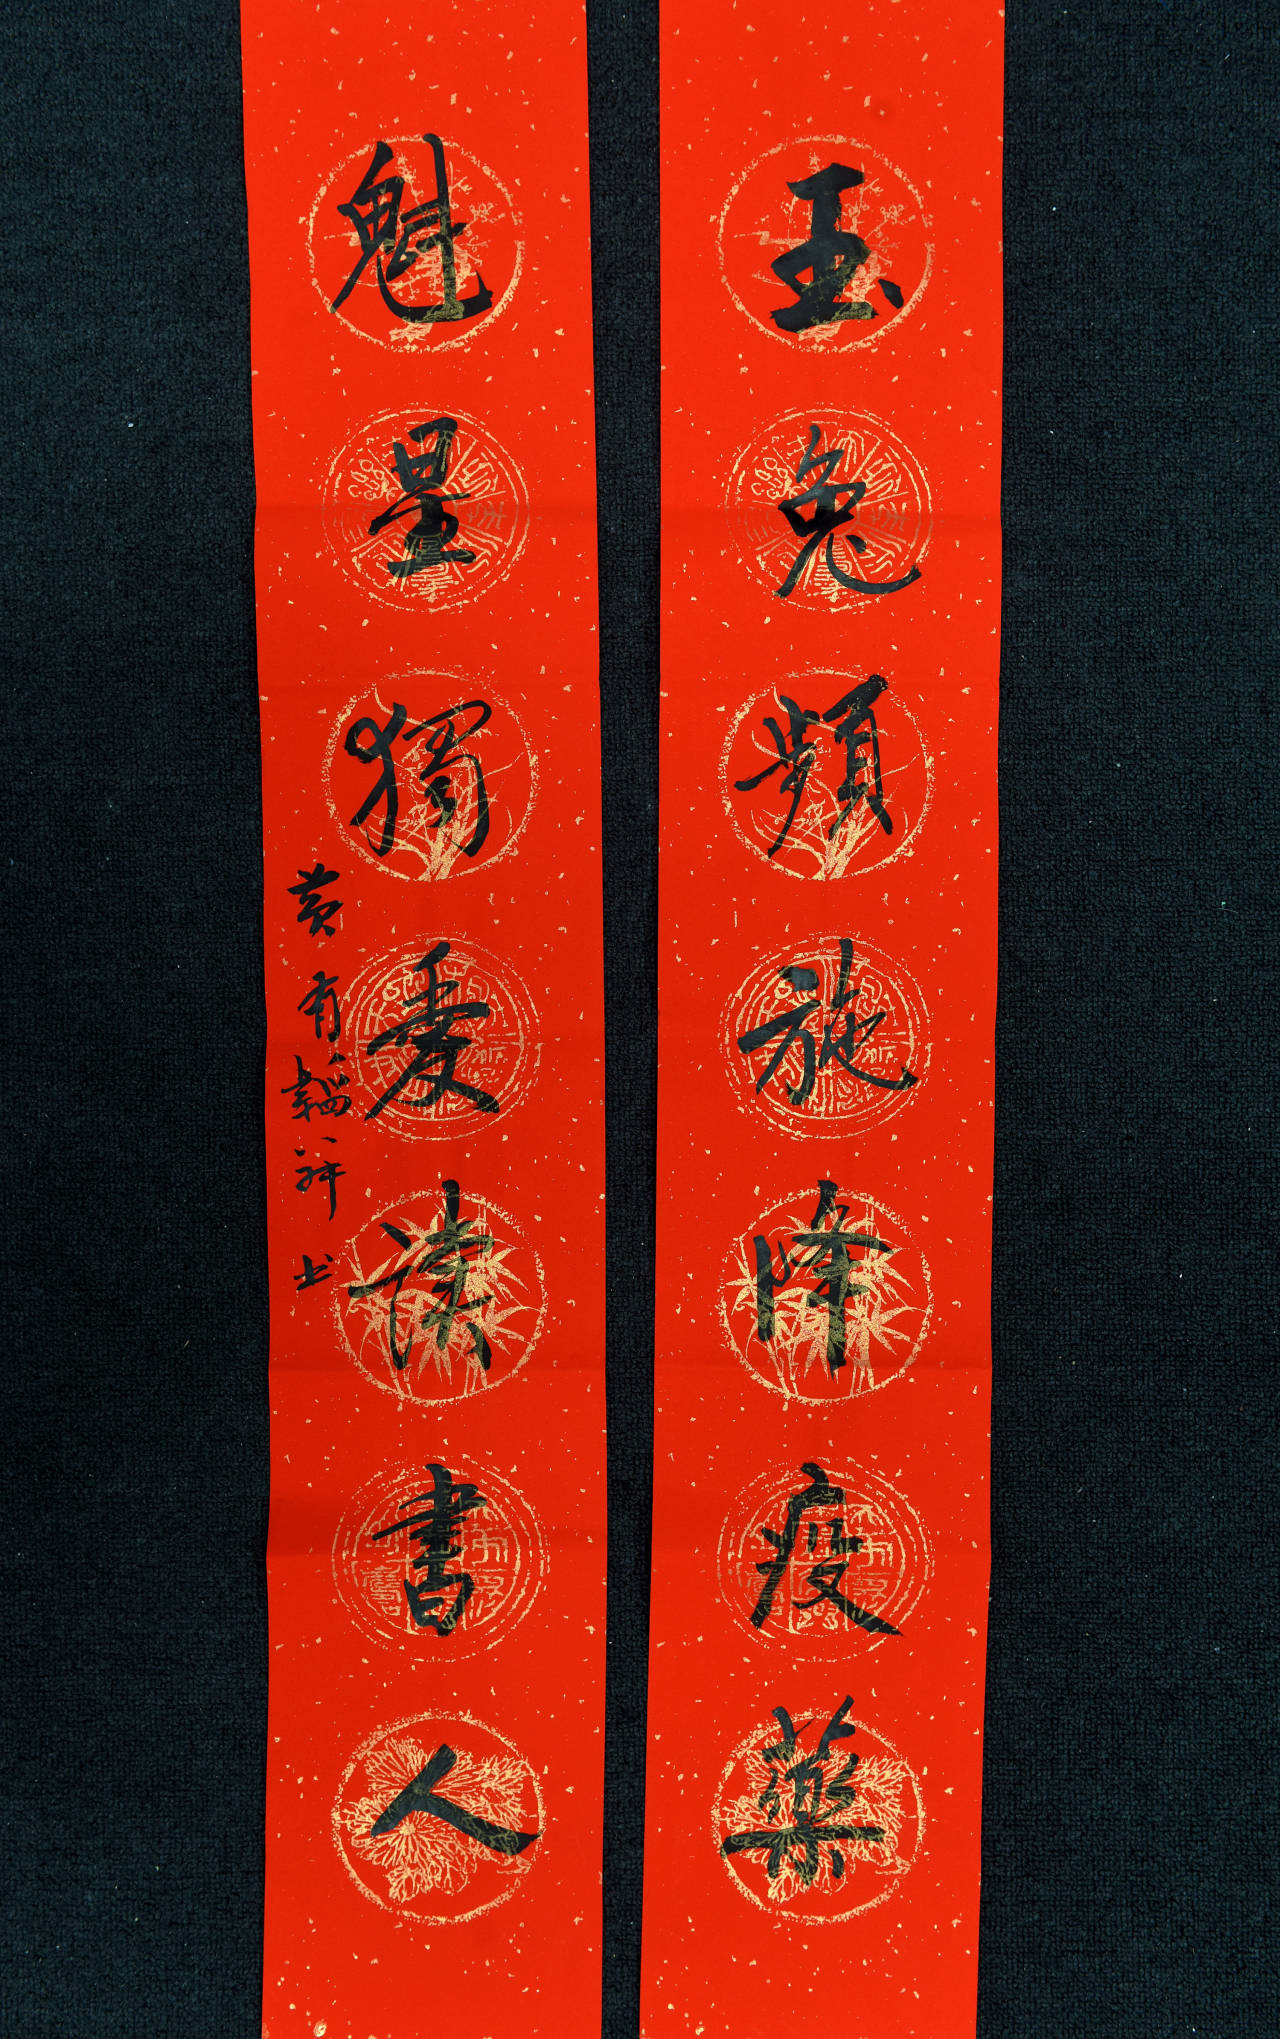 玉兔頻施降疫藥
魁星獨愛讀書人
黄有韞祥书